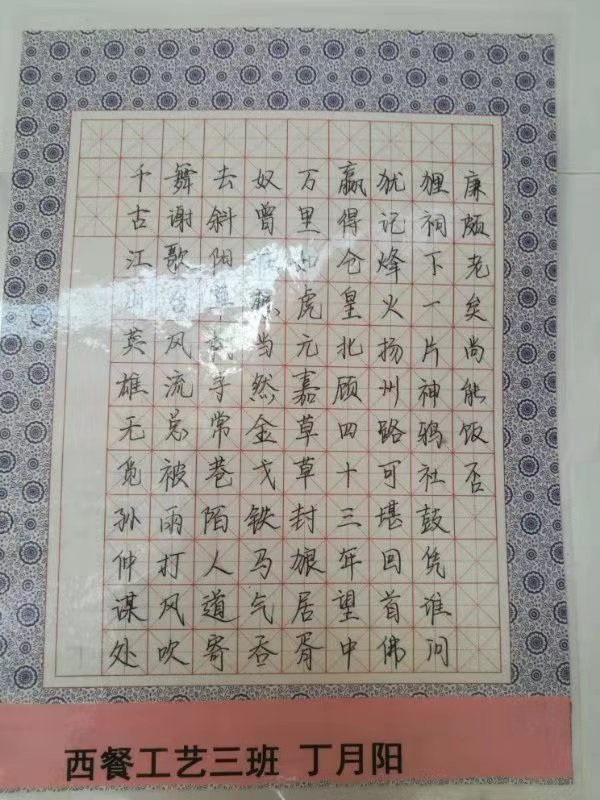 千古江山英雄无觅孙仲谋处
舞谢歌台风流总被雨打风吹
去斜阳草树寻常巷陌人道寄
奴曾住想当然金戈铁马气吞
万里如虎元嘉草草封狼居胥
赢得仓皇北顾四十三年望中
犹记烽火扬州路可堪回首佛
狸祠下一片神鸦社鼓凭谁问
廉颇老矣尚能饭否
西餐工艺三班 丁月阳